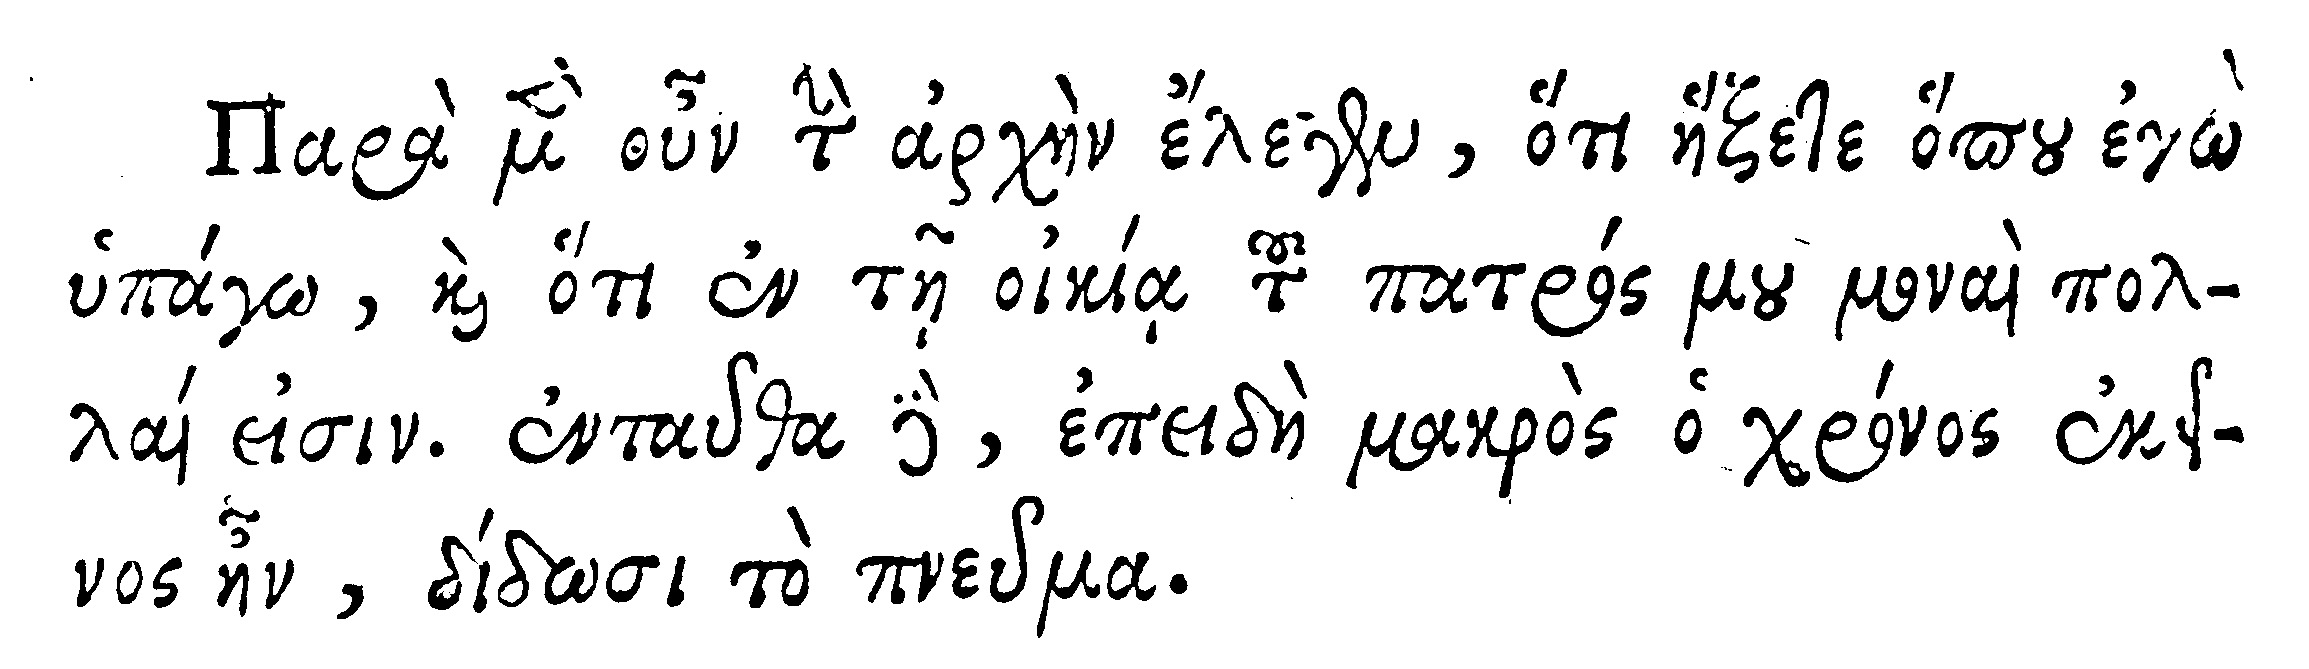 Παρὰ μὲν οὖν τὴν ἀρχὴν ἔλεγεν, ὅτι ἥξετε ὅπου ἐγὼ
ὑπάγω, καὶ ὅτι ἐν τῇ οἰκίᾳ τοῦ πατρός μου μοναὶ πολ-
λαί εἰσιν. ἐνταῦθα δὲ, ἐπειδὴ μακρὸς ὁ χρόνος ἐκεῖ-
νος ἦν, δίδωσι τὸ πνεῦμα.